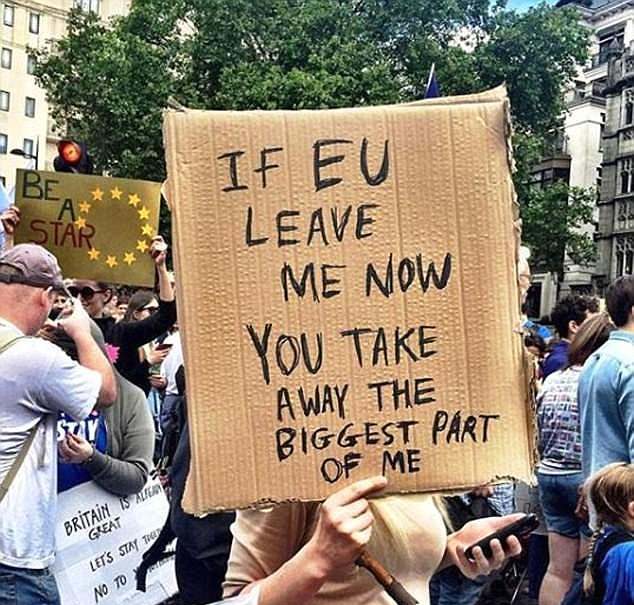 IF EU
LEAVE
ME NOW
YOU TAKE
AWAY THE
BIGGEST PART
OF ME
BE
A
STAR
STAY
BRITAIN IS ALREADY
GREAT
LET'S STAY
NO TO